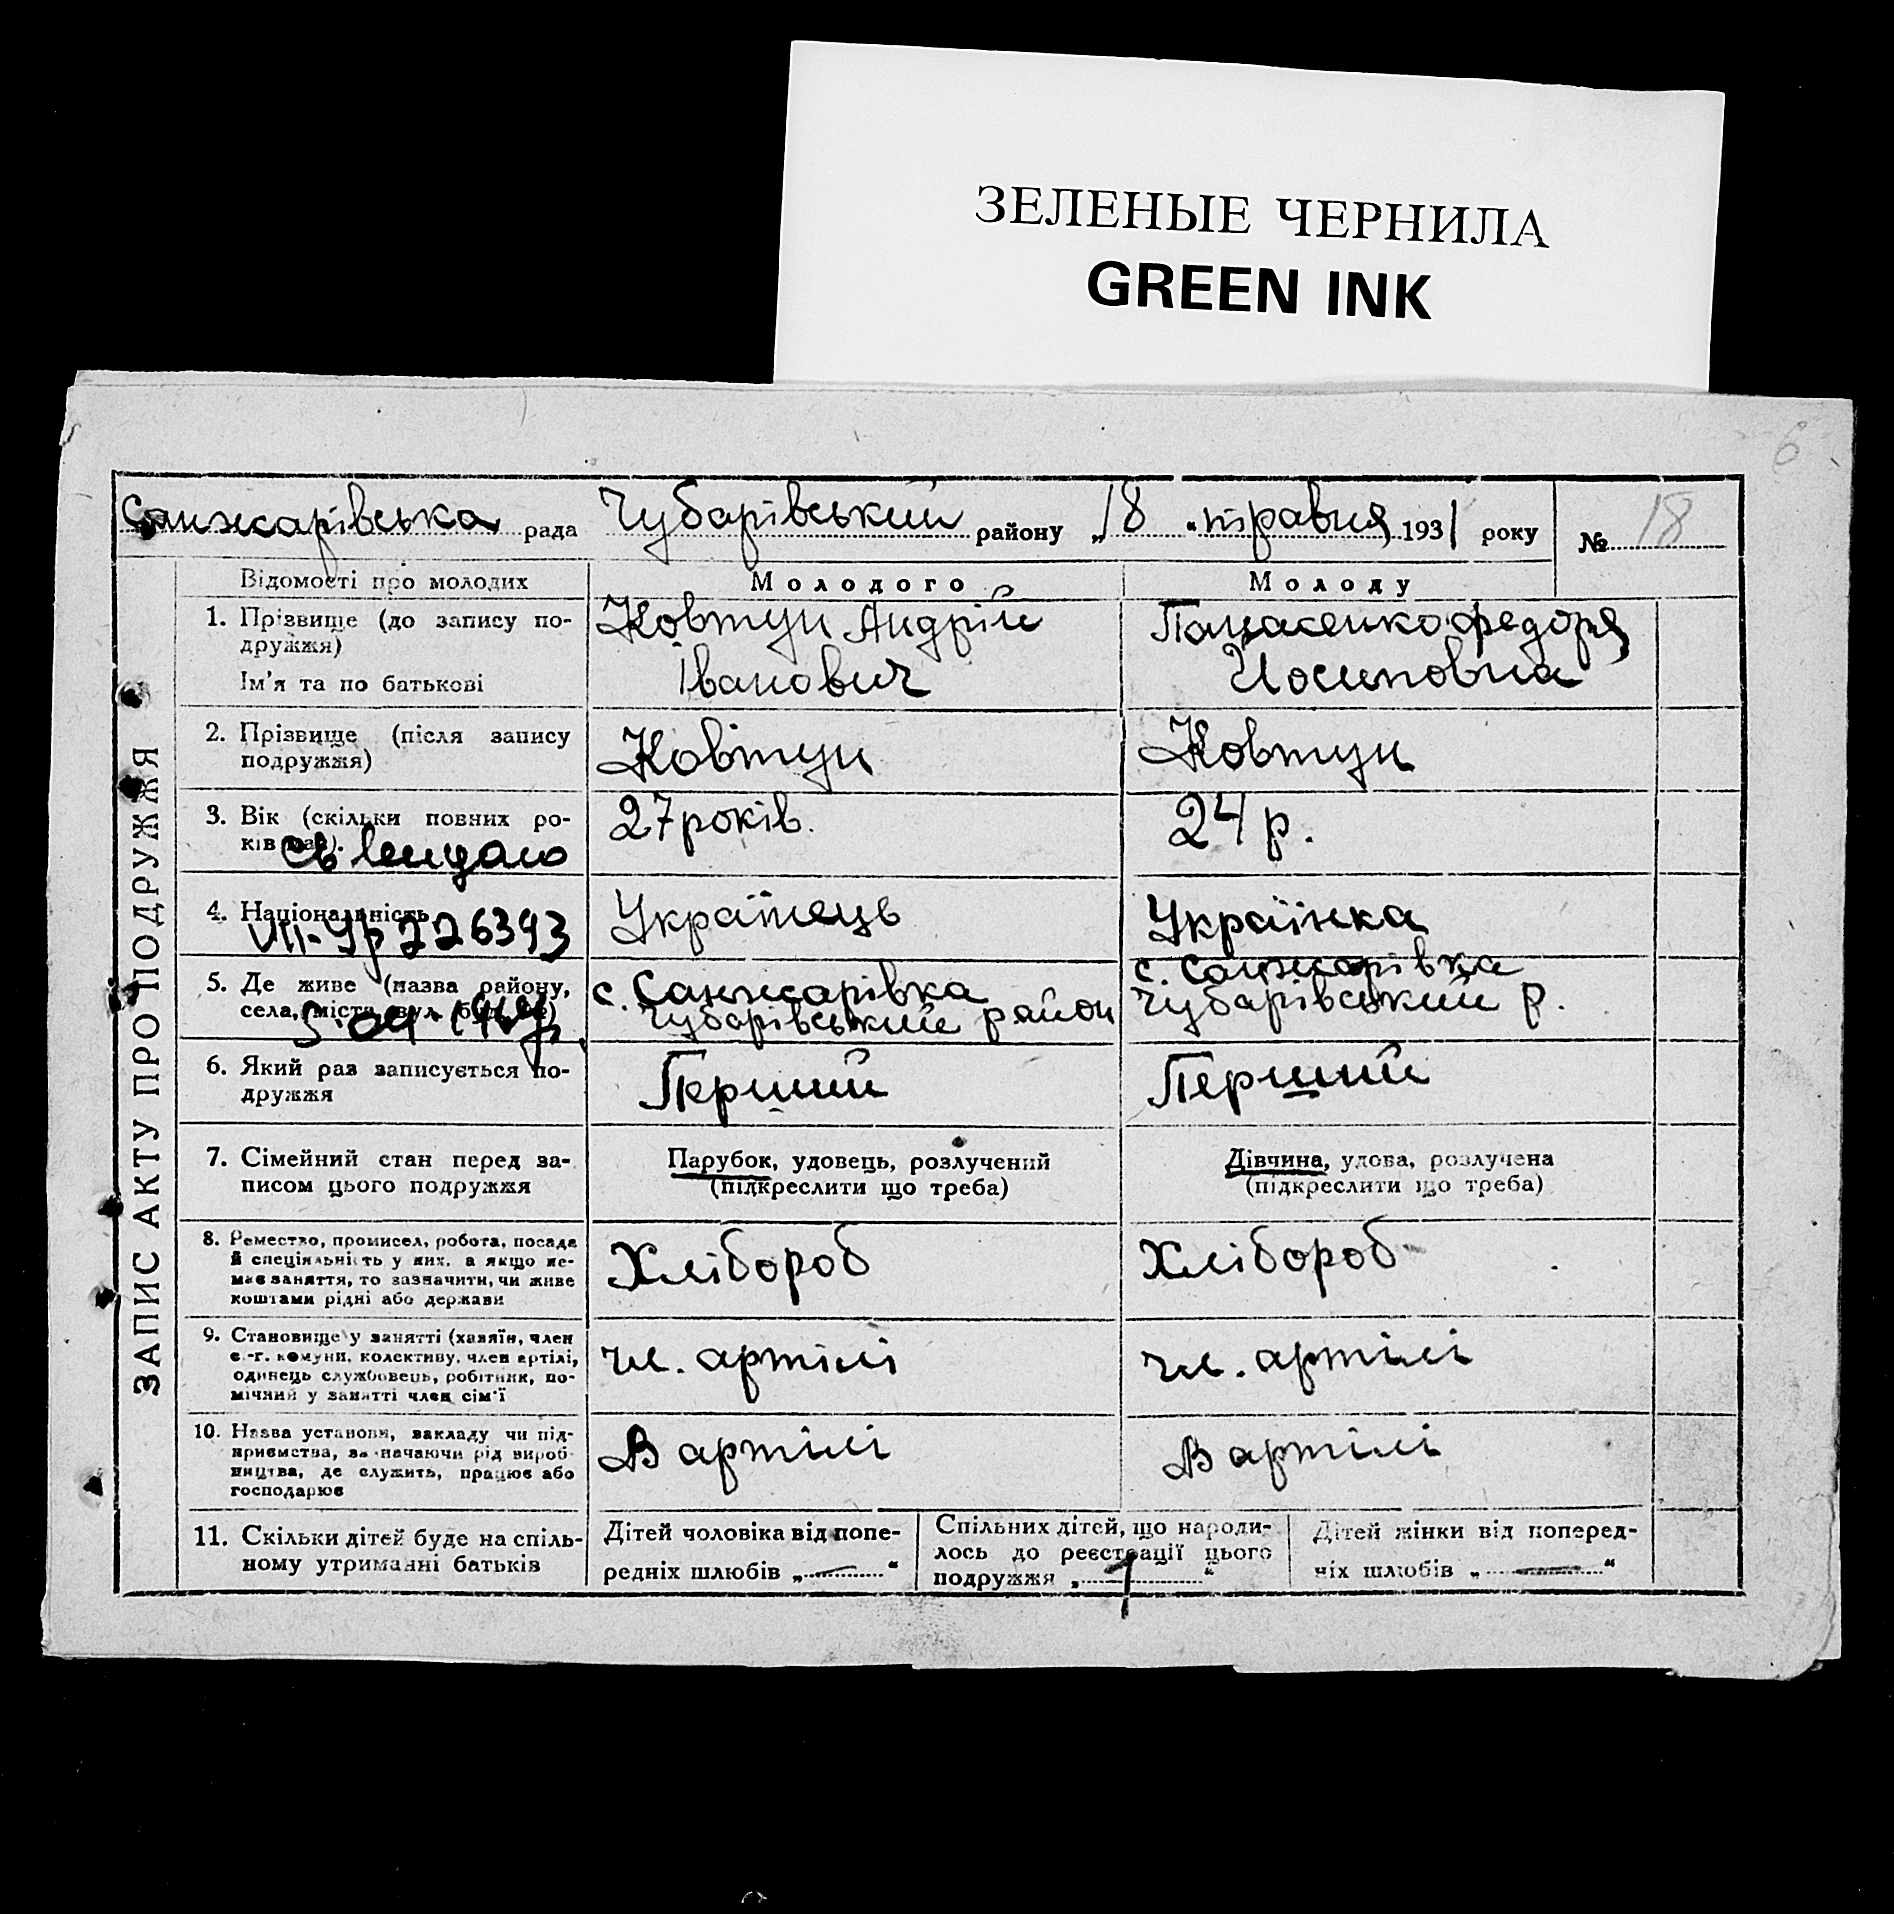 ЗЕЛЕНЫЕ ЧЕРНИЛА
GREEN INK
6
Санжарівська рада Чубарівський району „18“ травня 1931 року № 18
ЗАПИС АКТУ ПРО ПОДРУЖЖЯ
Відомості про молодих
Молодого
Молоду
1. Прізвище (до запису по-
дружжя)
Ім'я та по батькові
Ковтун Андрій
Іванович
Панасенко Федоря
Йосиповна
2. Прізвище (після запису
подружжя)
Ковтун
Ковтун
3. Вік (скільки повних ро-
ків має).
27 років.
24 р.
4. Національність
VII-УР 226393
Українець
Українка
5. Де живе (назва району,
села, міста, вул., буд. №)
с. Санжарівка
Чубарівський район
с. Санжарівка
Чубарівський р.
6. Який раз записується по-
дружжя
Перший
Перший
7. Сімейний стан перед за-
писом цього подружжя
Парубок, удовець, розлучений
(підкреслити що треба)
Дівчина, удова, розлучена
(підкреслити що треба)
8. Ремество, промисел, робота, посада
й спеціяльність у них, а якщо не-
має заняття, то зазначити, чи живе
коштами рідні або держави
Хлібороб
Хлібороб
9. Становище у занятті (хазяїн, член
с.-г. комуни, колективу, член артілі,
одинець службовець, робітник, по-
мічний у занятті член сім'ї
чл. артілі
чл. артілі
10. Назва установи, закладу чи під-
приємства, зазначаючи рід вироб-
ництва, де служить, працює або
господарює
В артілі
В артілі
11. Скільки дітей буде на спіль-
ному утриманні батьків
Дітей чоловіка від попе-
редніх шлюбів „—“
Спільних дітей, що народи-
лось до реєстрації цього
подружжя „1“
Дітей жінки від поперед-
ніх шлюбів „—“